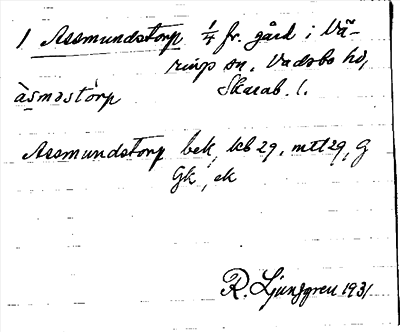 1 Assmundstorp 1/4 fr. gård i Vä-
ring sn, Vadsbo hd,
àsmastórp Skarab. l.
Assmundstorp bek, kb 29, mtl 29, G
Gk, ek
R. Ljunggren 1931